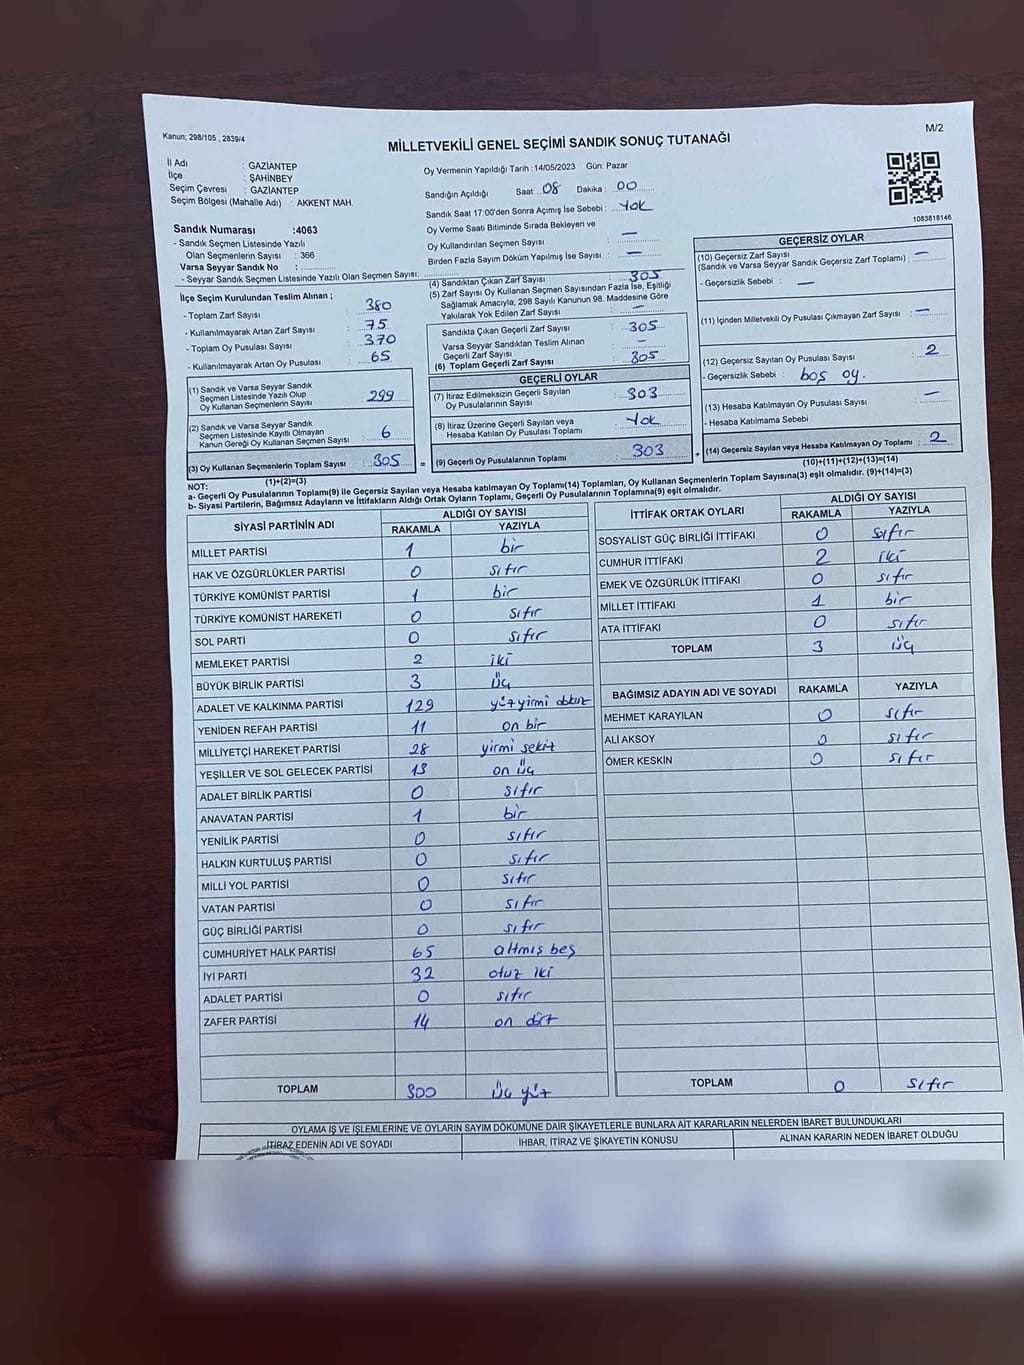 Kanun; 298/105 , 2839/4
M/2
MİLLETVEKİLİ GENEL SEÇİMİ SANDIK SONUÇ TUTANAĞI
İl Adı : GAZİANTEP
İlçe : ŞAHİNBEY
Seçim Çevresi : GAZİANTEP
Seçim Bölgesi (Mahalle Adı) : AKKENT MAH.
Sandık Numarası :4063
- Sandık Seçmen Listesinde Yazılı
Olan Seçmenlerin Sayısı : 366
Varsa Seyyar Sandık No :
- Seyyar Sandık Seçmen Listesinde Yazılı Olan Seçmen Sayısı:
Oy Vermenin Yapıldığı Tarih :14/05/2023 Gün: Pazar
Sandığın Açıldığı Saat: 08 Dakika : 00
Sandık Saat 17:00'den Sonra Açımış İse Sebebi : Yok
Oy Verme Saati Bitiminde Sırada Bekleyen ve
Oy Kullandırılan Seçmen Sayısı : —
Birden Fazla Sayım Döküm Yapılmış İse Sayısı : —
1083818146
İlçe Seçim Kurulundan Teslim Alınan ;
- Toplam Zarf Sayısı : 380
- Kullanılmayarak Artan Zarf Sayısı : 75
- Toplam Oy Pusulası Sayısı : 370
- Kullanılmayarak Artan Oy Pusulası : 65
(1) Sandık ve Varsa Seyyar Sandık
Seçmen Listesinde Yazılı Olup
Oy Kullanan Seçmenlerin Sayısı : 299
(2) Sandık ve Varsa Seyyar Sandık
Seçmen Listesinde Kayıtlı Olmayan
Kanun Gereği Oy Kullanan Seçmen Sayısı : 6
(3) Oy Kullanan Seçmenlerin Toplam Sayısı : 305
(1)+(2)=(3)
(4) Sandıktan Çıkan Zarf Sayısı : 305
(5) Zarf Sayısı Oy Kullanan Seçmen Sayısından Fazla İse, Eşitliği
Sağlamak Amacıyla; 298 Sayılı Kanunun 98. Maddesine Göre
Yakılarak Yok Edilen Zarf Sayısı : —
Sandıkta Çıkan Geçerli Zarf Sayısı : 305
Varsa Seyyar Sandıktan Teslim Alınan
Geçerli Zarf Sayısı : —
(6) Toplam Geçerli Zarf Sayısı : 305
GEÇERLİ OYLAR
(7) İtiraz Edilmeksizin Geçerli Sayılan
Oy Pusulalarının Sayısı : 303
(8) İtiraz Üzerine Geçerli Sayılan veya
Hesaba Katılan Oy Pusulası Toplamı : Yok
= (9) Geçerli Oy Pusulalarının Toplamı : 303
GEÇERSİZ OYLAR
(10) Geçersiz Zarf Sayısı
(Sandık ve Varsa Seyyar Sandık Geçersiz Zarf Toplamı) : —
- Geçersizlik Sebebi : —
(11) İçinden Milletvekili Oy Pusulası Çıkmayan Zarf Sayısı : —
(12) Geçersiz Sayılan Oy Pusulası Sayısı : 2
- Geçersizlik Sebebi : boş oy.
(13) Hesaba Katılmayan Oy Pusulası Sayısı : —
- Hesaba Katılmama Sebebi :
+ (14) Geçersiz Sayılan veya Hesaba Katılmayan Oy Toplamı : 2
(10)+(11)+(12)+(13)=(14)
NOT:
a- Geçerli Oy Pusulalarının Toplamı(9) ile Geçersiz Sayılan veya Hesaba katılmayan Oy Toplamı(14) Toplamları, Oy Kullanan Seçmenlerin Toplam Sayısına(3) eşit olmalıdır. (9)+(14)=(3)
b- Siyasi Partilerin, Bağımsız Adayların ve İttifakların Aldığı Ortak Oyların Toplamı, Geçerli Oy Pusulalarının Toplamına(9) eşit olmalıdır.
SİYASİ PARTİNİN ADI ALDIĞI OY SAYISI
RAKAMLA YAZIYLA
MİLLET PARTİSİ 1 bir
HAK VE ÖZGÜRLÜKLER PARTİSİ 0 sıfır
TÜRKİYE KOMÜNİST PARTİSİ 1 bir
TÜRKİYE KOMÜNİST HAREKETİ 0 sıfır
SOL PARTİ 0 sıfır
MEMLEKET PARTİSİ 2 iki
BÜYÜK BİRLİK PARTİSİ 3 üç
ADALET VE KALKINMA PARTİSİ 129 yüz yirmi dokuz
YENİDEN REFAH PARTİSİ 11 on bir
MİLLİYETÇİ HAREKET PARTİSİ 28 yirmi sekiz
YEŞİLLER VE SOL GELECEK PARTİSİ 13 on üç
ADALET BİRLİK PARTİSİ 0 sıfır
ANAVATAN PARTİSİ 1 bir
YENİLİK PARTİSİ 0 sıfır
HALKIN KURTULUŞ PARTİSİ 0 sıfır
MİLLİ YOL PARTİSİ 0 sıfır
VATAN PARTİSİ 0 sıfır
GÜÇ BİRLİĞİ PARTİSİ 0 sıfır
CUMHURİYET HALK PARTİSİ 65 altmış beş
İYİ PARTİ 32 otuz iki
ADALET PARTİSİ 0 sıfır
ZAFER PARTİSİ 14 on dört
TOPLAM 300 üç yüz
İTTİFAK ORTAK OYLARI ALDIĞI OY SAYISI
RAKAMLA YAZIYLA
SOSYALİST GÜÇ BİRLİĞİ İTTİFAKI 0 sıfır
CUMHUR İTTİFAKI 2 iki
EMEK VE ÖZGÜRLÜK İTTİFAKI 0 sıfır
MİLLET İTTİFAKI 1 bir
ATA İTTİFAKI 0 sıfır
TOPLAM 3 üç
BAĞIMSIZ ADAYIN ADI VE SOYADI RAKAMLA YAZIYLA
MEHMET KARAYILAN 0 sıfır
ALİ AKSOY 0 sıfır
ÖMER KESKİN 0 sıfır
TOPLAM 0 sıfır
OYLAMA İŞ VE İŞLEMLERİNE VE OYLARIN SAYIM DÖKÜMÜNE DAİR ŞİKAYETLERLE BUNLARA AİT KARARLARIN NELERDEN İBARET BULUNDUKLARI
İTİRAZ EDENİN ADI VE SOYADI İHBAR, İTİRAZ VE ŞİKAYETİN KONUSU ALINAN KARARIN NEDEN İBARET OLDUĞU